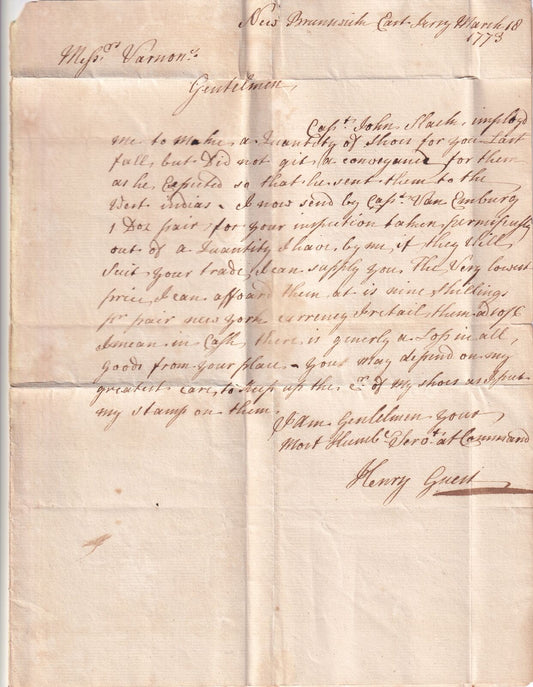 New Brunswick East Jersy March 18
1773
Messrs Varnons
Gentelmen,
Capt. John Slack, imployd
me to make a Quantity of Shoes for you Last
fall, but Did not git a conveyance for them
as he, Expected so that he sent them to the
West indias - I now send by Capt. Van Emburg
1 Doz pair, for your inspection taken permiscusly
out of a Quantity I have by me, if they Will
Suit your trade, I can supply you. The Very lowest
price, I can affoard them at is nine Shillings
pr pair new york currency I retail them at
I mean in Cash, there is generly a Loss in all,
goods from your place - your may depend on my
greatest care, to keep up the Cr. of my shoes as I put
my stamp on them.
I Am Gentelmen your
Most Humble Servt at Command
Henry Guest